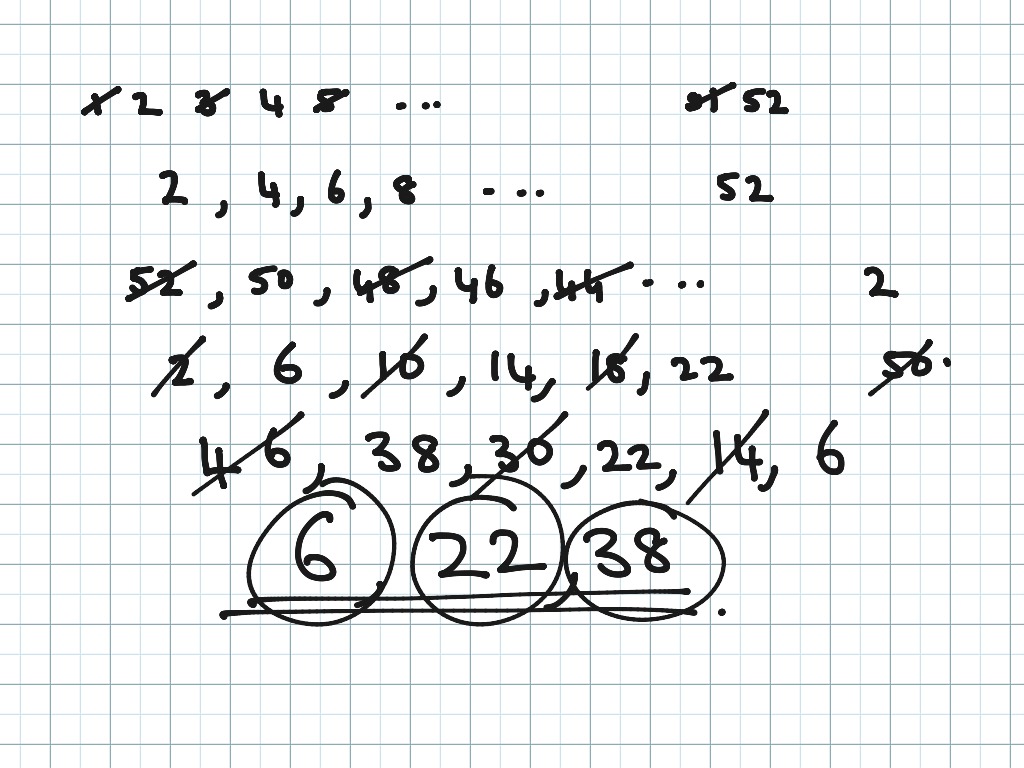 1 2 3 4 5 ... 51 52
2 , 4 , 6 , 8 ... 52
52 , 50 , 48 , 46 , 44 ... 2
2 , 6 , 10 , 14 , 18 , 22 50 .
46 , 38 , 30 , 22 , 14 , 6
6 22 38 .